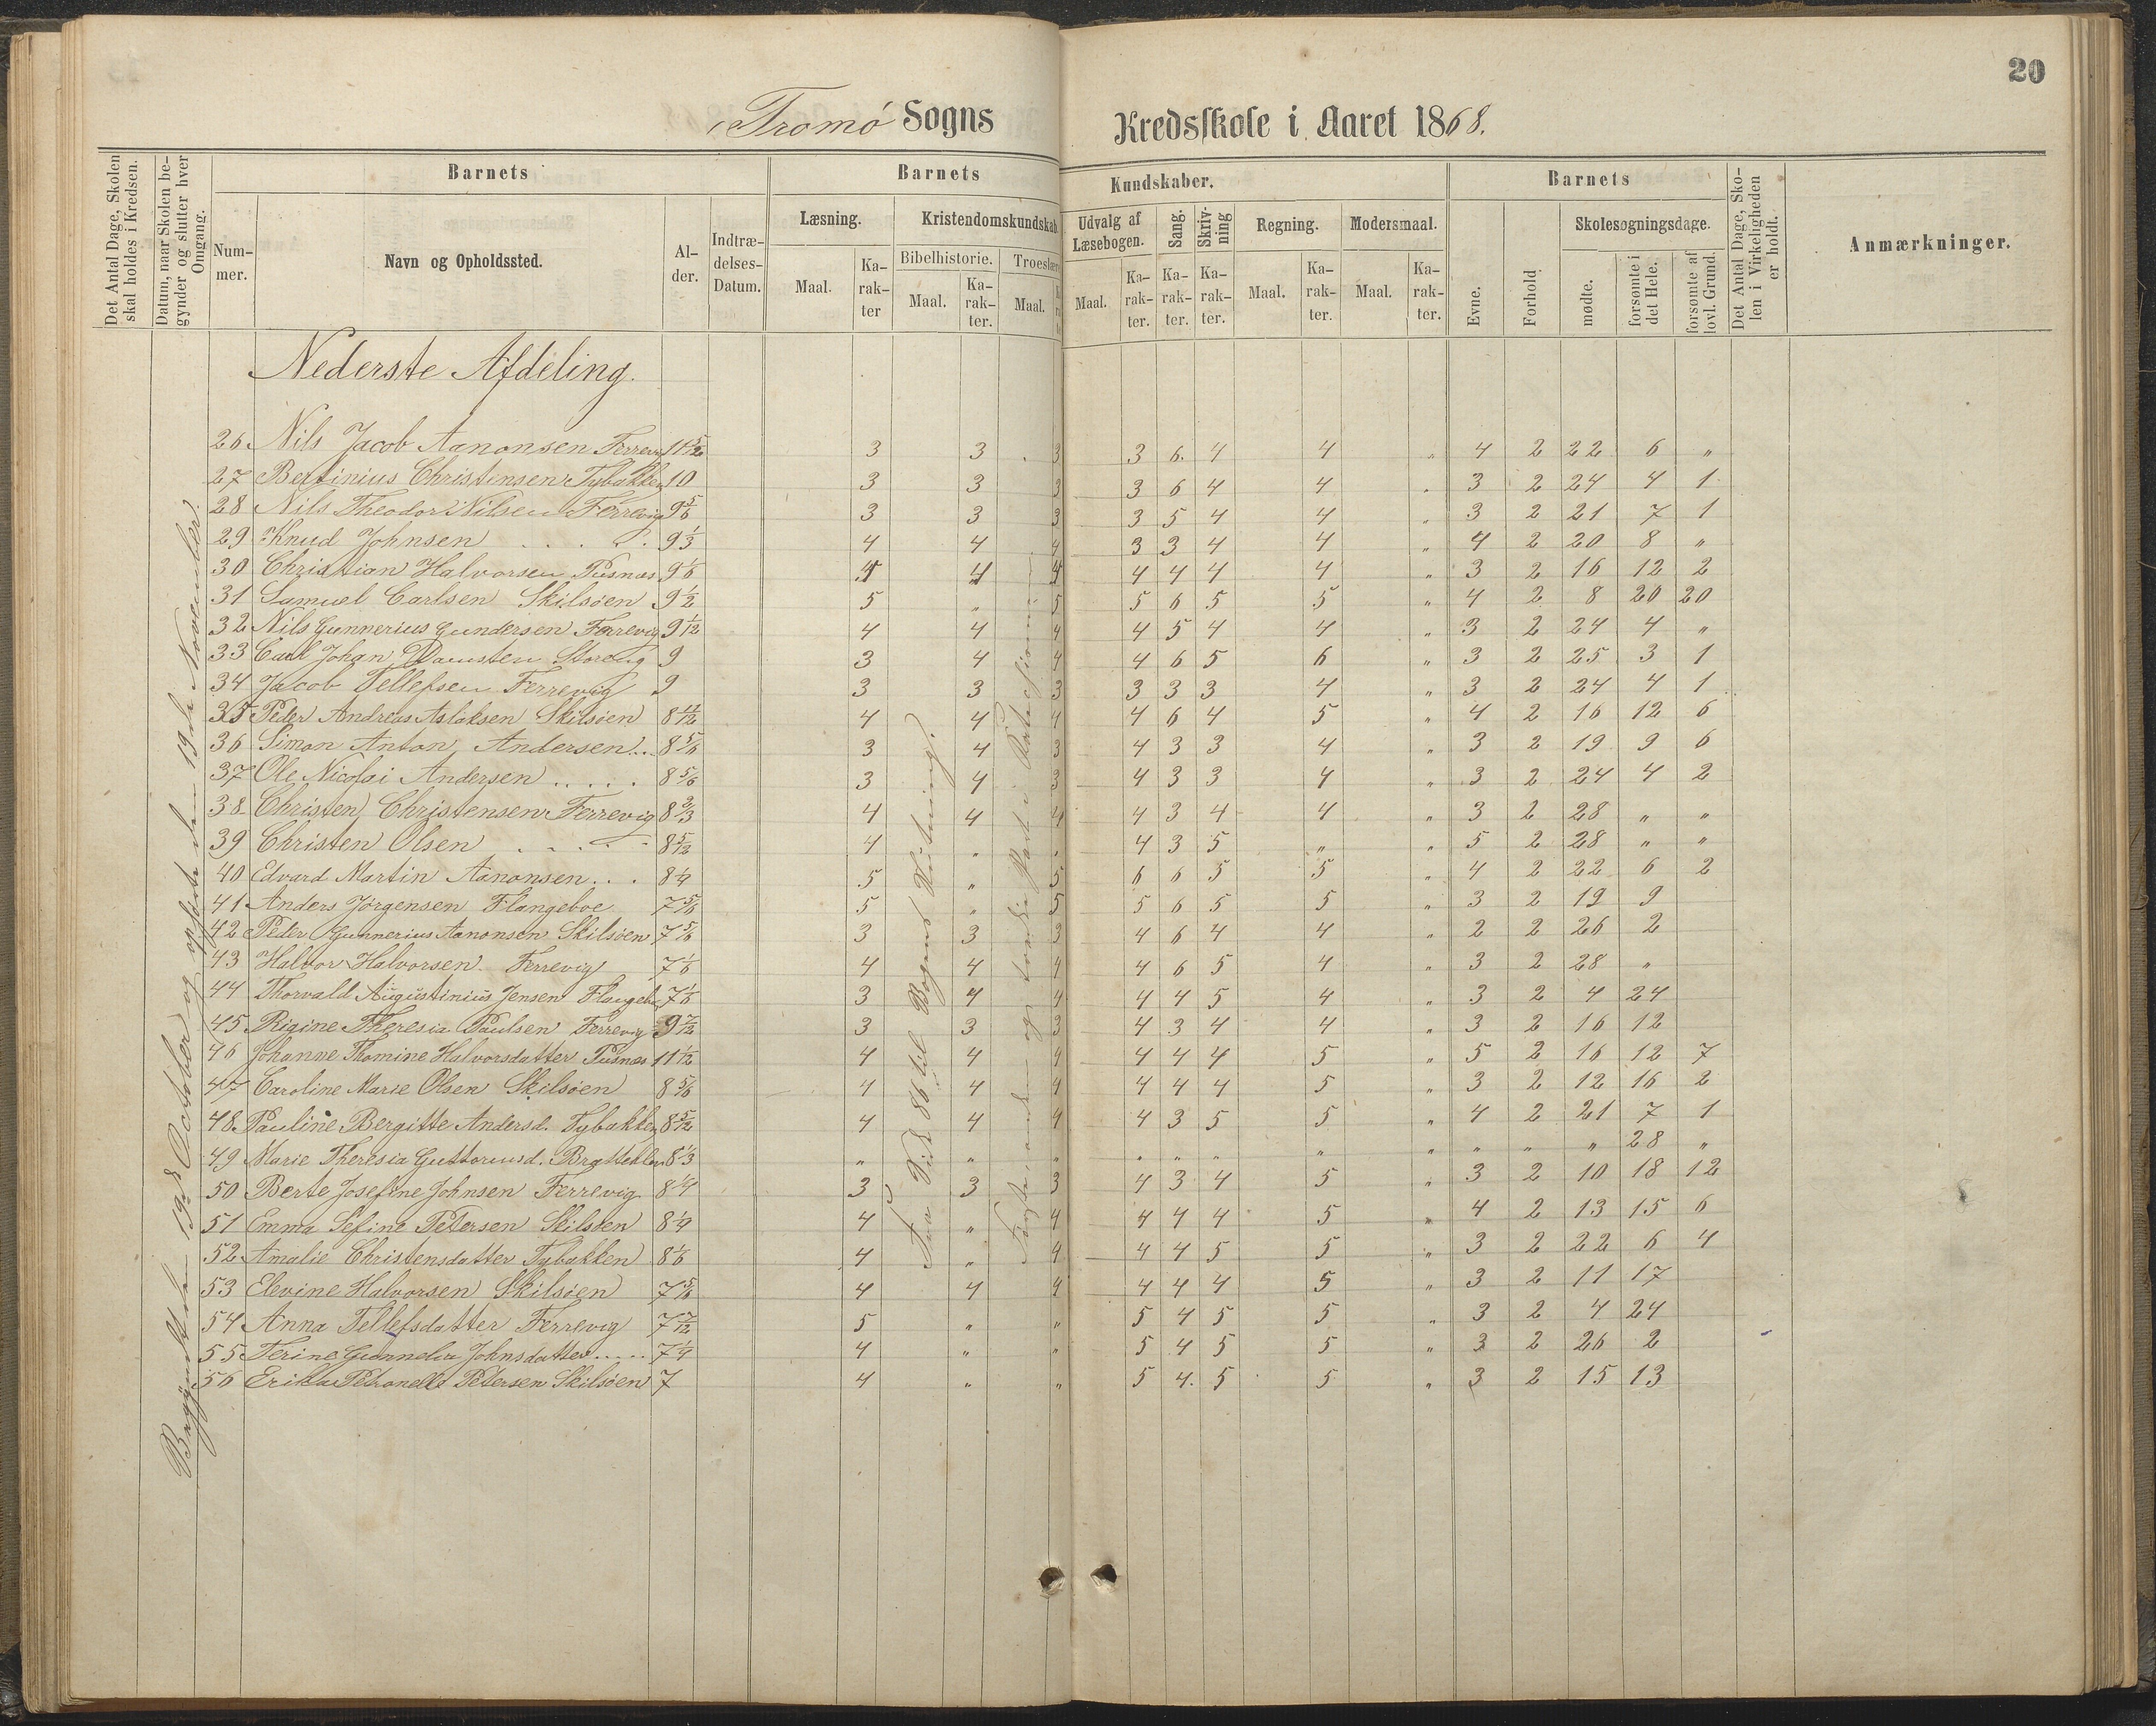 20
Tromø Sogns Kredsskole i Aaret 1868.
Det Antal Dage, Skolen skal holdes i Kredsen.
Datum, naar Skolen begynder og slutter hver Omgang.
Barnets
Barnets Kundskaber.
Barnets
Det Antal Dage, Skolen i Virkeligheden er holdt.
Anmærkninger.
Nummer.
Navn og Opholdssted.
Alder.
Indtrædelses-Datum.
Læsning.
Kristendomskundskab.
Udvalg af Læsebogen.
Sang.
Skrivning
Regning.
Modersmaal.
Evne.
Forhold
Skolesøgningsdage.
Bibelhistorie.
Troeslære
Maal. Karakter Maal. Karakter. Maal.
Maal. Karakter. Karakter. Karakter. Maal. Karakter. Maal. Karakter.
mødte.
forsømte i det Hele.
forsømte af lovl. Grund.
Nederste Afdeling.
26 Nils Jacob Aanonsen Ferrevig 11 5/12 3 3 3 3 6 4 4 " 4 2 22 6 "
27 Bertinius Christensen Tybakken 10 3 3 3 3 6 4 4 " 3 2 24 4 1
28 Nils Theodor Nilsen Ferrevig 9 5/6 3 3 3 3 5 4 4 " 3 2 21 7 1
29 Knud Johnsen . . . . 9 1/3 4 4 4 3 3 4 4 " 4 2 20 8 "
30 Christian Halvorsen Pusnæs 9 1/6 4 4 4 4 4 4 4 " 3 2 16 12 2
31 Samuel Carlsen Skilsøen 9 1/2 5 " 5 5 6 5 5 " 4 2 8 20 20
32 Nils Gunnerius Gundersen Ferrevig 9 1/12 4 4 4 4 5 4 4 " 3 2 24 4 "
33 Carl Johan 9 3 4 4 4 6 5 6 " 3 2 25 3 1
34 Jacob Tellefsen Ferrevig 9 3 3 3 3 3 3 4 " 3 2 24 4 1
35 Peder Andreas Aslaksen Skilsøen 8 11/12 4 4 4 4 6 4 5 " 4 2 16 12 6
36 Simon Anton Andersen . . 8 5/6 3 4 3 4 3 3 4 " 3 2 19 9 6
37 Ole Nicolai Andersen . . . . . 8 5/6 3 4 3 4 3 3 4 " 3 2 24 4 2
38 Christen Christensen Ferrevig 8 2/3 4 4 4 4 3 4 4 " 3 2 28 " "
39 Christen Olsen . . . . . 8 5/12 4 " " 4 3 5 " " 5 2 28 " "
40 Edvard Martin Aanonsen . . . 8 1/4 5 " 5 6 6 5 5 " 4 2 22 6 2
41 Anders Jørgensen Flangeboe 7 5/6 5 " 5 5 6 5 5 " 3 2 19 9
42 Peder Gunnerius Aanonsen Skilsøen 7 5/6 3 3 3 4 6 4 4 " 2 2 26 2
43 Halvor Halvorsen Ferrevig 7 1/6 4 4 4 4 6 5 4 " 3 2 28 "
44 Thorvald Augustinius Jensen Flangeb. 7 1/6 3 4 4 4 4 5 4 " 3 2 4 24
45 Rigine Theresia Paulsen Ferrevig 9 7/12 3 3 3 4 3 4 4 " 3 2 16 12
46 Johanne Thomine Halvorsdatter Pusnæs 11 1/12 4 4 4 4 4 4 5 " 5 2 16 12 7
47 Caroline Marie Olsen Skilsøen 8 5/6 4 4 4 4 4 4 5 " 3 2 12 16 2
48 Pauline Bergitte Andersd. Tybakken 8 5/12 4 4 4 4 3 5 5 " 4 2 21 7 1
49 Marie Theresia Guttormsd. 8 1/3 " " " " " " " " " " " 28 "
50 Berte Josefine Johnsen Ferrevig 8 1/4 3 3 3 4 3 4 5 " 3 2 10 18 12
51 Emma Sefine Petersen Skilsøen 8 1/4 4 " 4 4 4 4 5 " 4 2 13 15 6
52 Amalie Christensdatter Tybakken 8 1/6 4 " 4 4 4 5 5 " 3 2 22 6 4
53 Elevine Halvorsen Skilsøen 7 5/6 4 4 4 4 4 4 5 " 3 2 11 17
54 Anna Tellefsdatter Ferrevig 7 7/12 5 " " 5 4 5 5 " 3 2 4 24
55 Terine Gunnelia Johnsdatter . . . . . 7 1/4 4 " " 5 4 5 5 " 3 2 26 2
56 Erika Petronelle Petersen Skilsøen 7 4 " " 5 4. 5 5 " 3 2 15 13
Begyndt den 19de October og den 19de November.
Fra Side 86 til Bogens Slutning.
Første og Part i